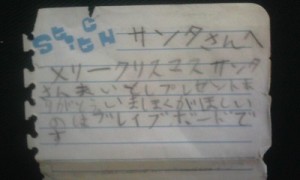 サンタさんへ
メリークリスマス サンタ
さん まいとしプレゼントを
ありがとう いまぼくがほしい
のはブレイブボードで
す